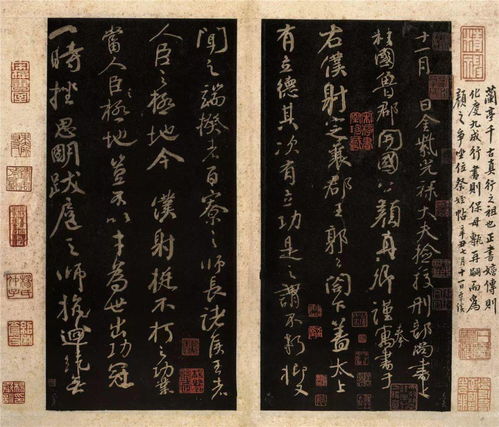 十一月 日金紫光祿大夫檢校刑部尚書上
柱國魯郡開國公顏真卿謹奉寓書于
右僕射定襄郡王郭公閣下蓋太上
有立德其次有立功是之謂不朽抑又
聞之端揆者百寮之師長諸侯王者
人臣之極地今僕射挺不朽之功業
當人臣極地豈不以才為世出功冠
一時挫思明跋扈之師抗迴紇無
蘭亭千古真行之祖也正書嫡傳則
化度九成行書則保母甎再嗣而為
顏之爭坐位祭姪帖